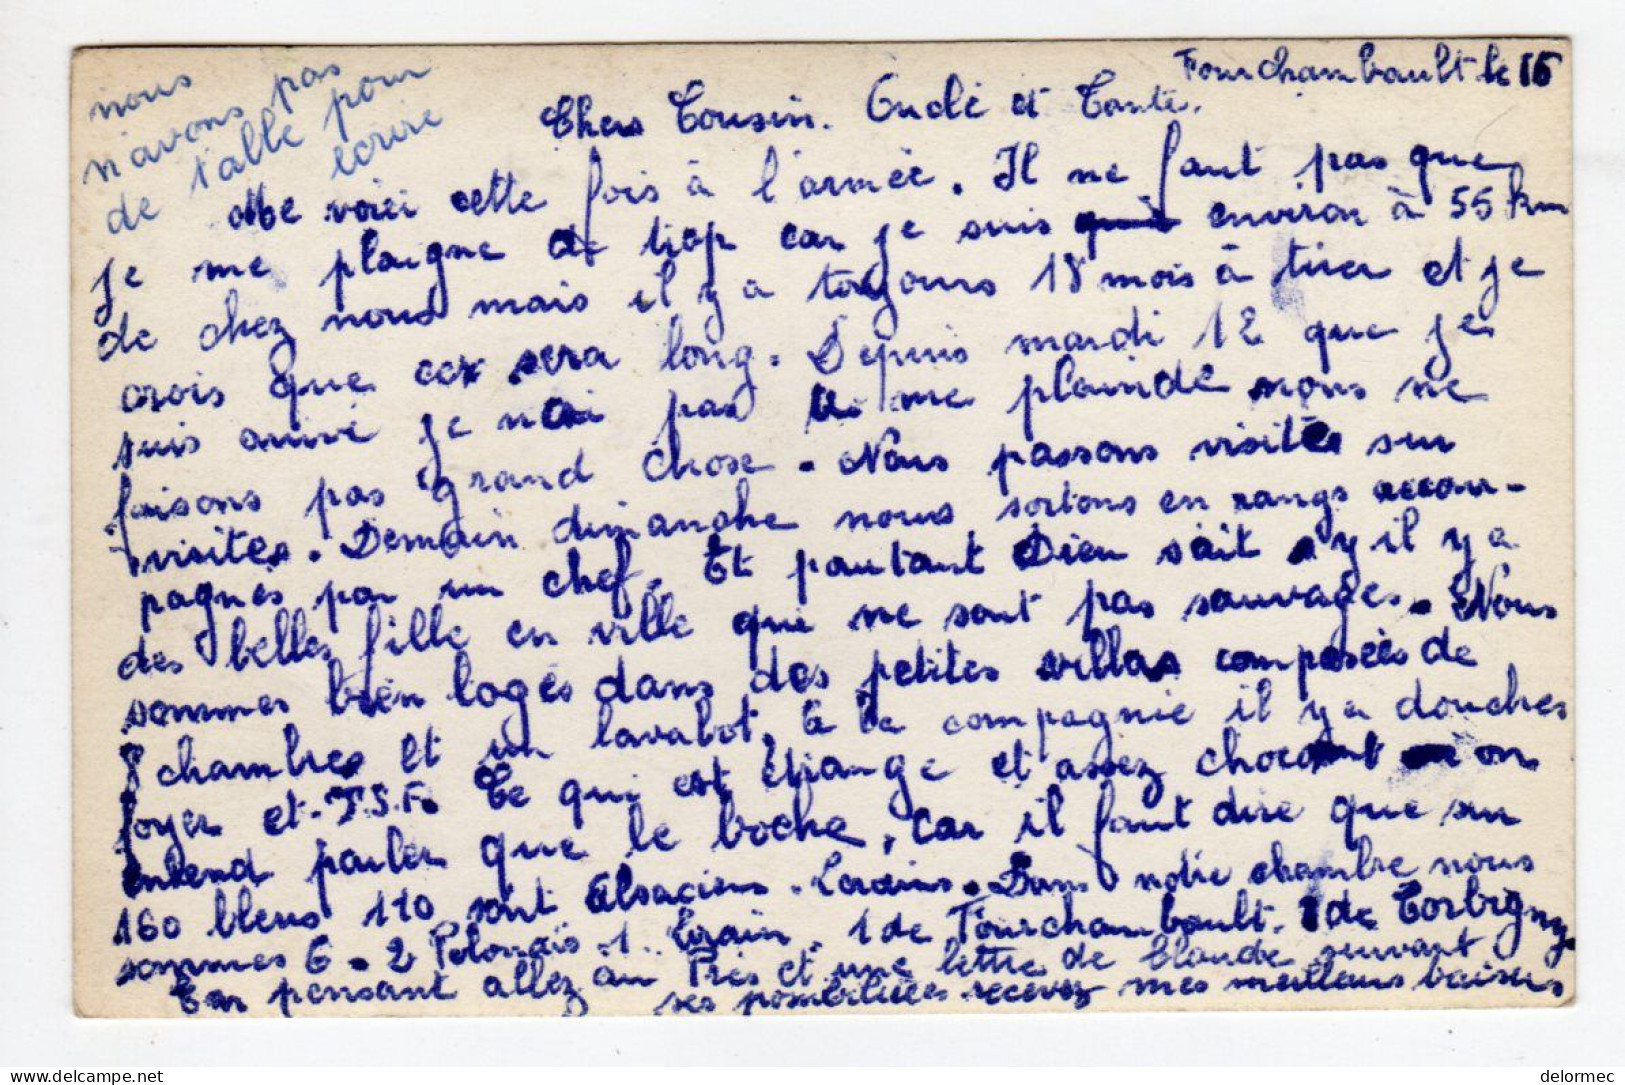 Fourchambault le 16
nous
n'avons pas
de table pour
écrire
Chers Cousin. Oncle et Tante.
Me voici cette fois à l'armée. Il ne faut pas que
je me plaigne de trop car je suis environ à 55 km
de chez nous mais il y a toujours 18 mois à tirer et je
crois que ce sera long. Depuis mardi 12 que je
suis arrivé je n'ai pas à me plainde nous ne
faisons pas grand chose. Nous passons visites sur
visites. Demain dimanche nous sortons en rangs accom-
pagnés par un chef. Et pourtant Dieu sait s'y il y a
des belles fille en ville que ne sont pas sauvages. Nous
sommes bien logés dans des petites villas composées de
8 chambres et un lavabot, à la compagnie il y a douches
foyer et T.S.F. Ce qui est étrange et assez chocant on
entend parler que le boche, car il faut dire que sur
160 bleus 110 sont Alsaciens-Lorains. Dans notre chambre nous
sommes 6. 2 Polonais. 1 Lorain. 1 de Fourchambault. 1 de Corbigny
En pensant allez au Près et une lettre de Claude suivant
ses possibilitées recevez mes meilleurs baisers
delormec